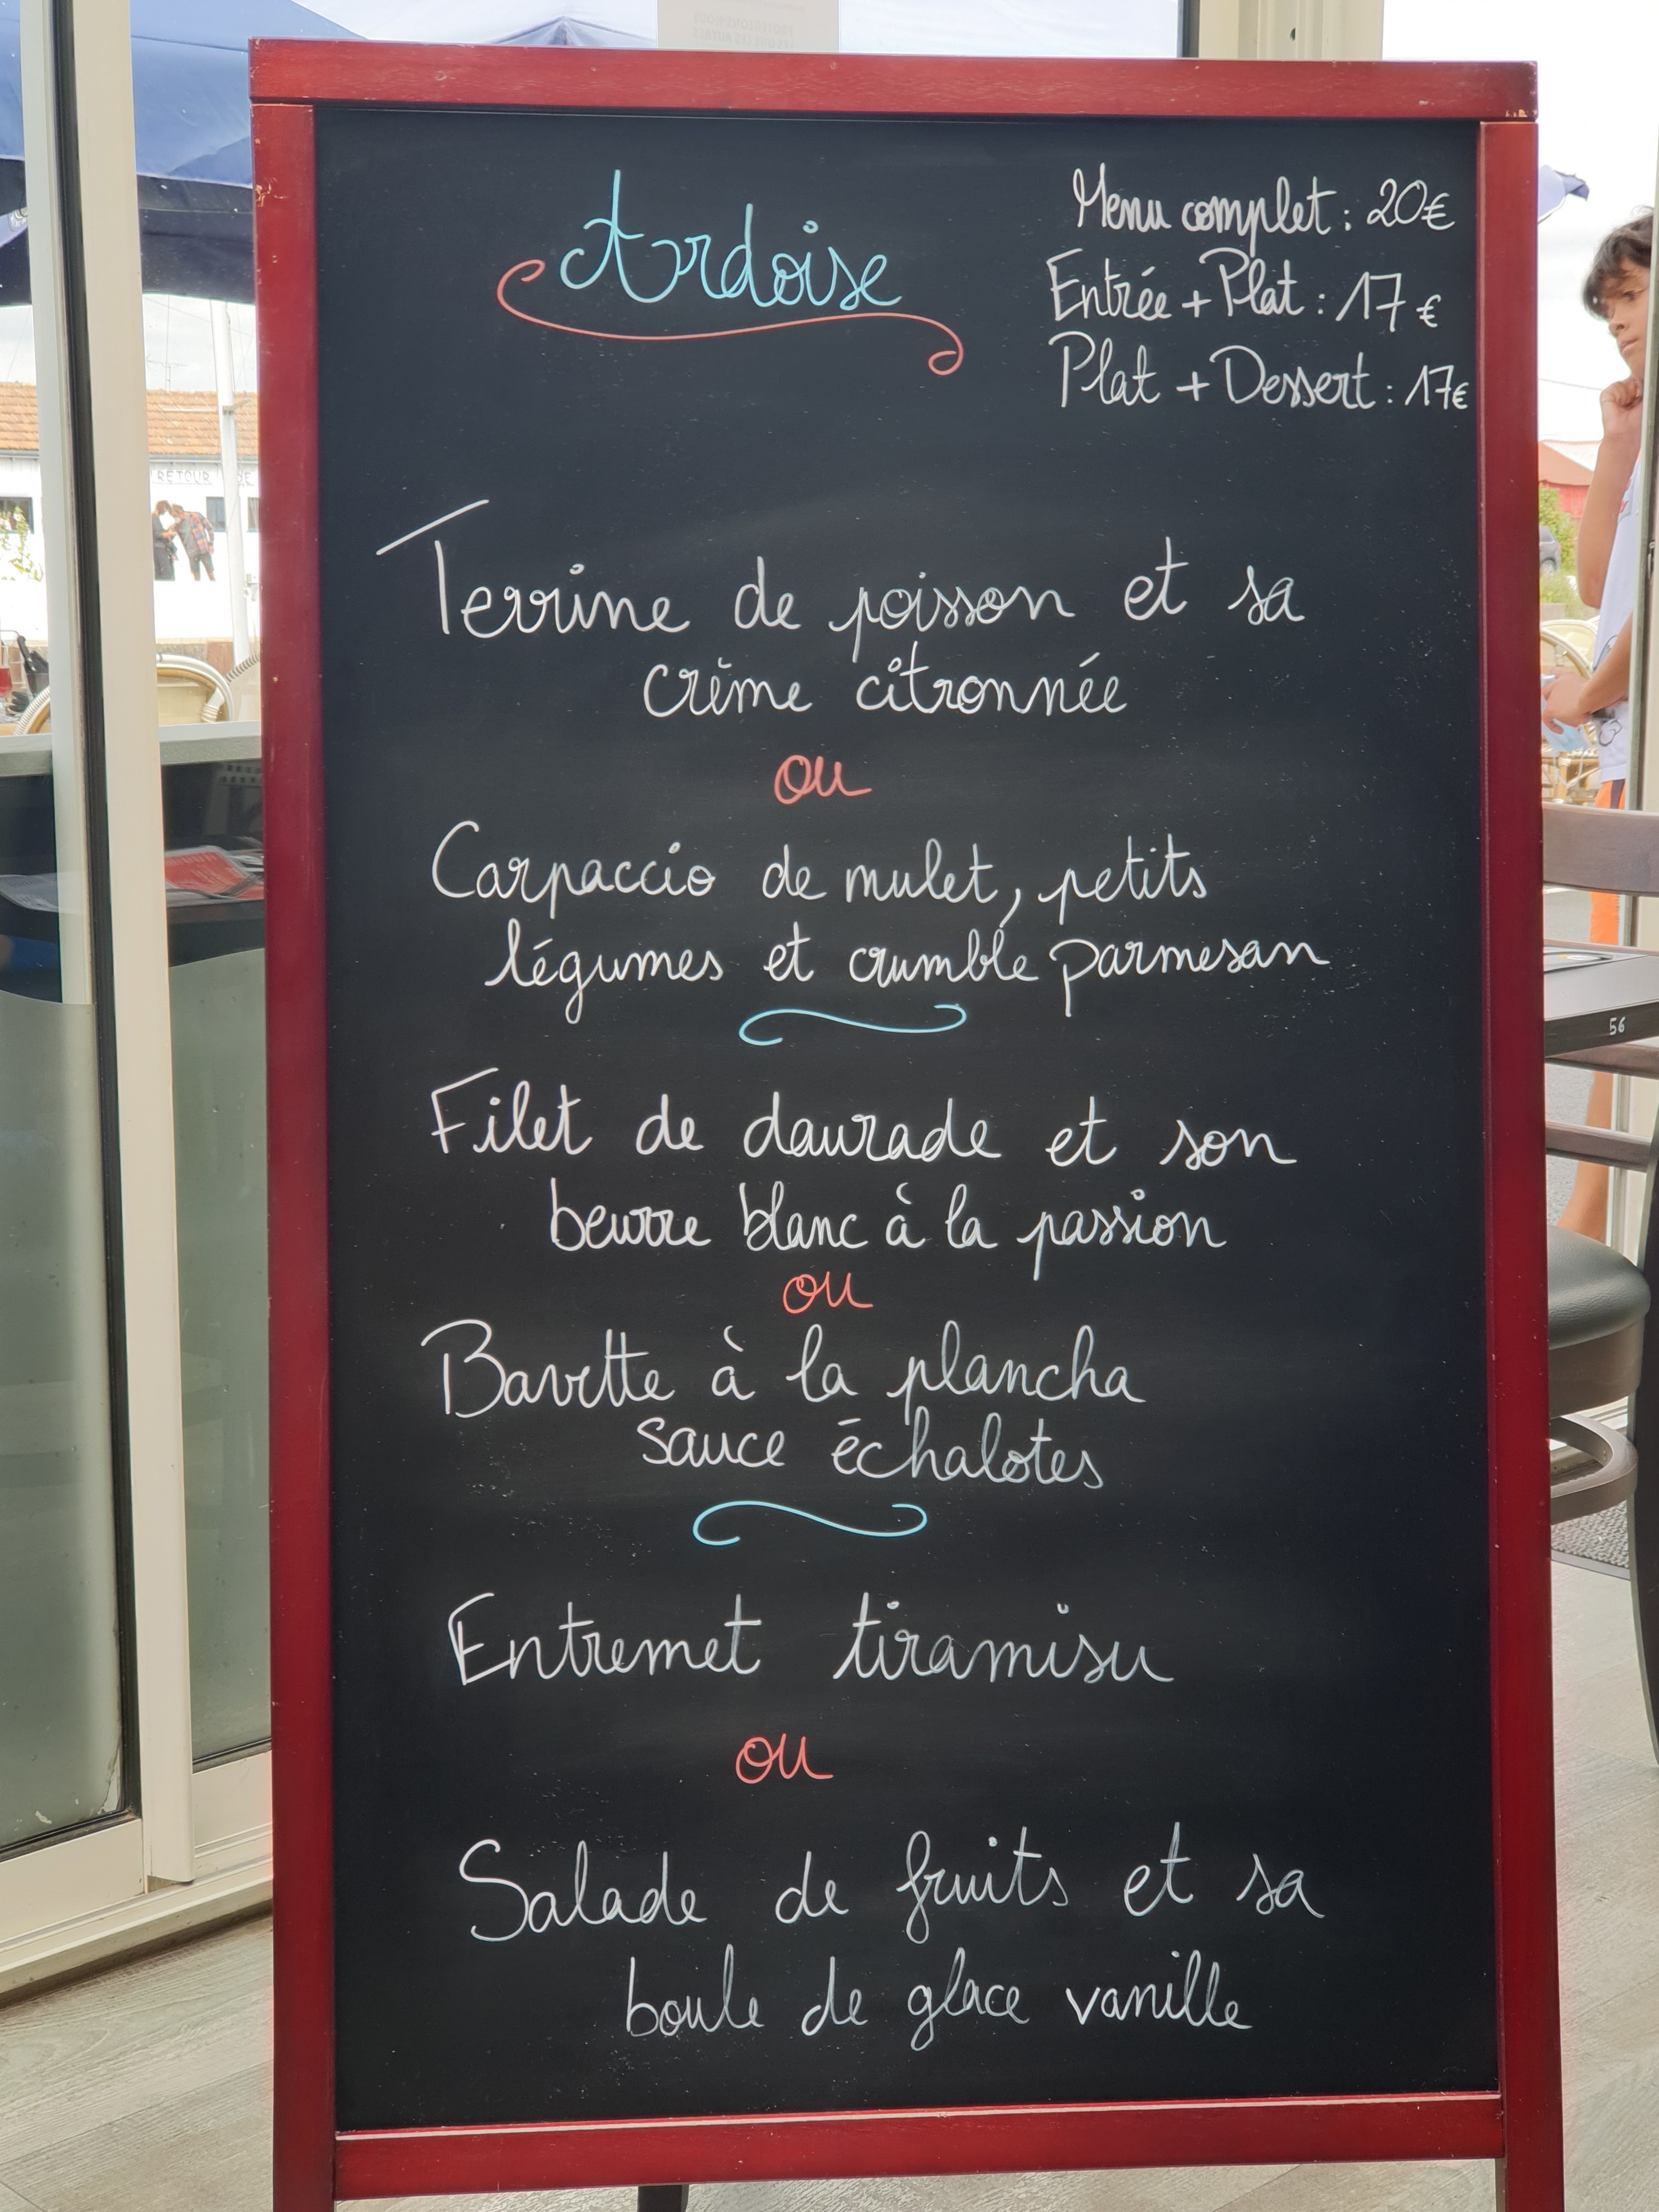 Ardoise
Menu complet : 20€
Entrée + Plat : 17€
Plat + Dessert : 17€
Terrine de poisson et sa
crème citronnée
ou
Carpaccio de mulet, petits
légumes et crumble parmesan
Filet de daurade et son
beurre blanc à la passion
ou
Bavette à la plancha
sauce échalotes
Entremet tiramisu
ou
Salade de fruits et sa
boule de glace vanille
RETOUR DE
56